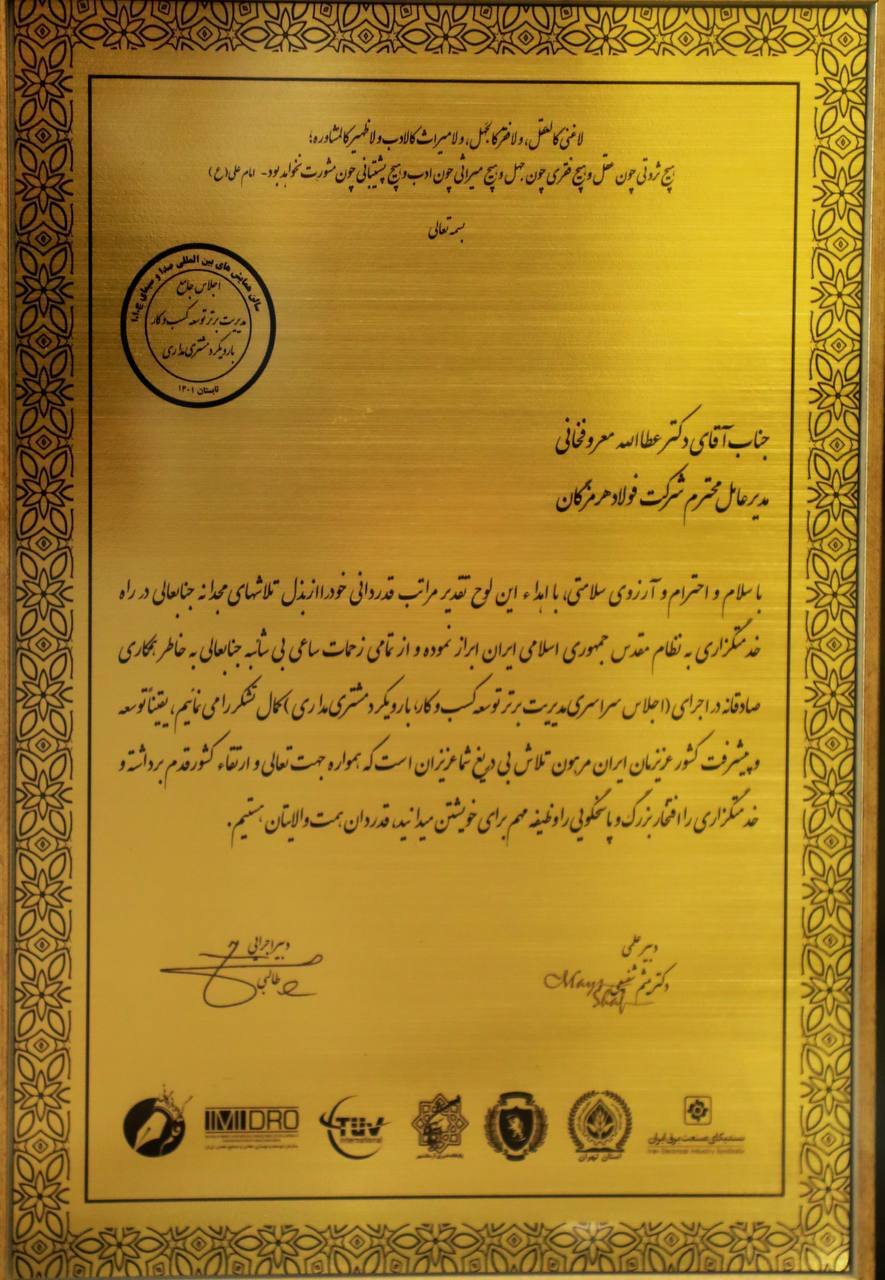 لا غنی کالعقل، و لا فقر کالجهل، و لا میراث کالادب و لا ظهیر کالمشاوره؛
هیچ ثروتی چون عقل و هیچ فقری چون جهل و هیچ میراثی چون ادب و هیچ پشتیبانی چون مشورت نخواهد بود - امام علی (ع)
بسمه تعالی
سالن همایش های بین المللی صدا و سیمای ج.ا.ا
اجلاس جامع
مدیریت برتر توسعه کسب و کار
با رویکرد مشتری مداری
تابستان ۱۴۰۱
جناب آقای دکتر عطاالله معروفخانی
مدیرعامل محترم شرکت فولاد هرمزگان
با سلام و احترام و آرزوی سلامتی، با اهداء این لوح تقدیر مراتب قدردانی خود را از بذل تلاشهای مجدانه جنابعالی در راه
خدمتگزاری به نظام مقدس جمهوری اسلامی ایران ابراز نموده و از تمامی زحمات ساعی بی شائبه جنابعالی به خاطر همکاری
صادقانه در اجرای (اجلاس سراسری مدیریت برتر توسعه کسب و کار؛ با رویکرد مشتری مداری) کمال تشکر را می نمائیم، یقیناً توسعه
و پیشرفت کشور عزیزمان ایران مرهون تلاش بی دریغ شما عزیزان است که همواره جهت تعالی و ارتقاء کشور قدم برداشته و
خدمتگزاری را افتخار بزرگ و پاسخگویی را وظیفه مهم برای خویشتن میدانید، قدردان همت والایتان هستیم.
دبیر علمی
دکتر میثم شفیعی
دبیر اجرایی
طالبی
سندیکای صنعت برق ایران
Iran Electrical Industry Syndicate
استان تهران
TÜV
International
IMIDRO